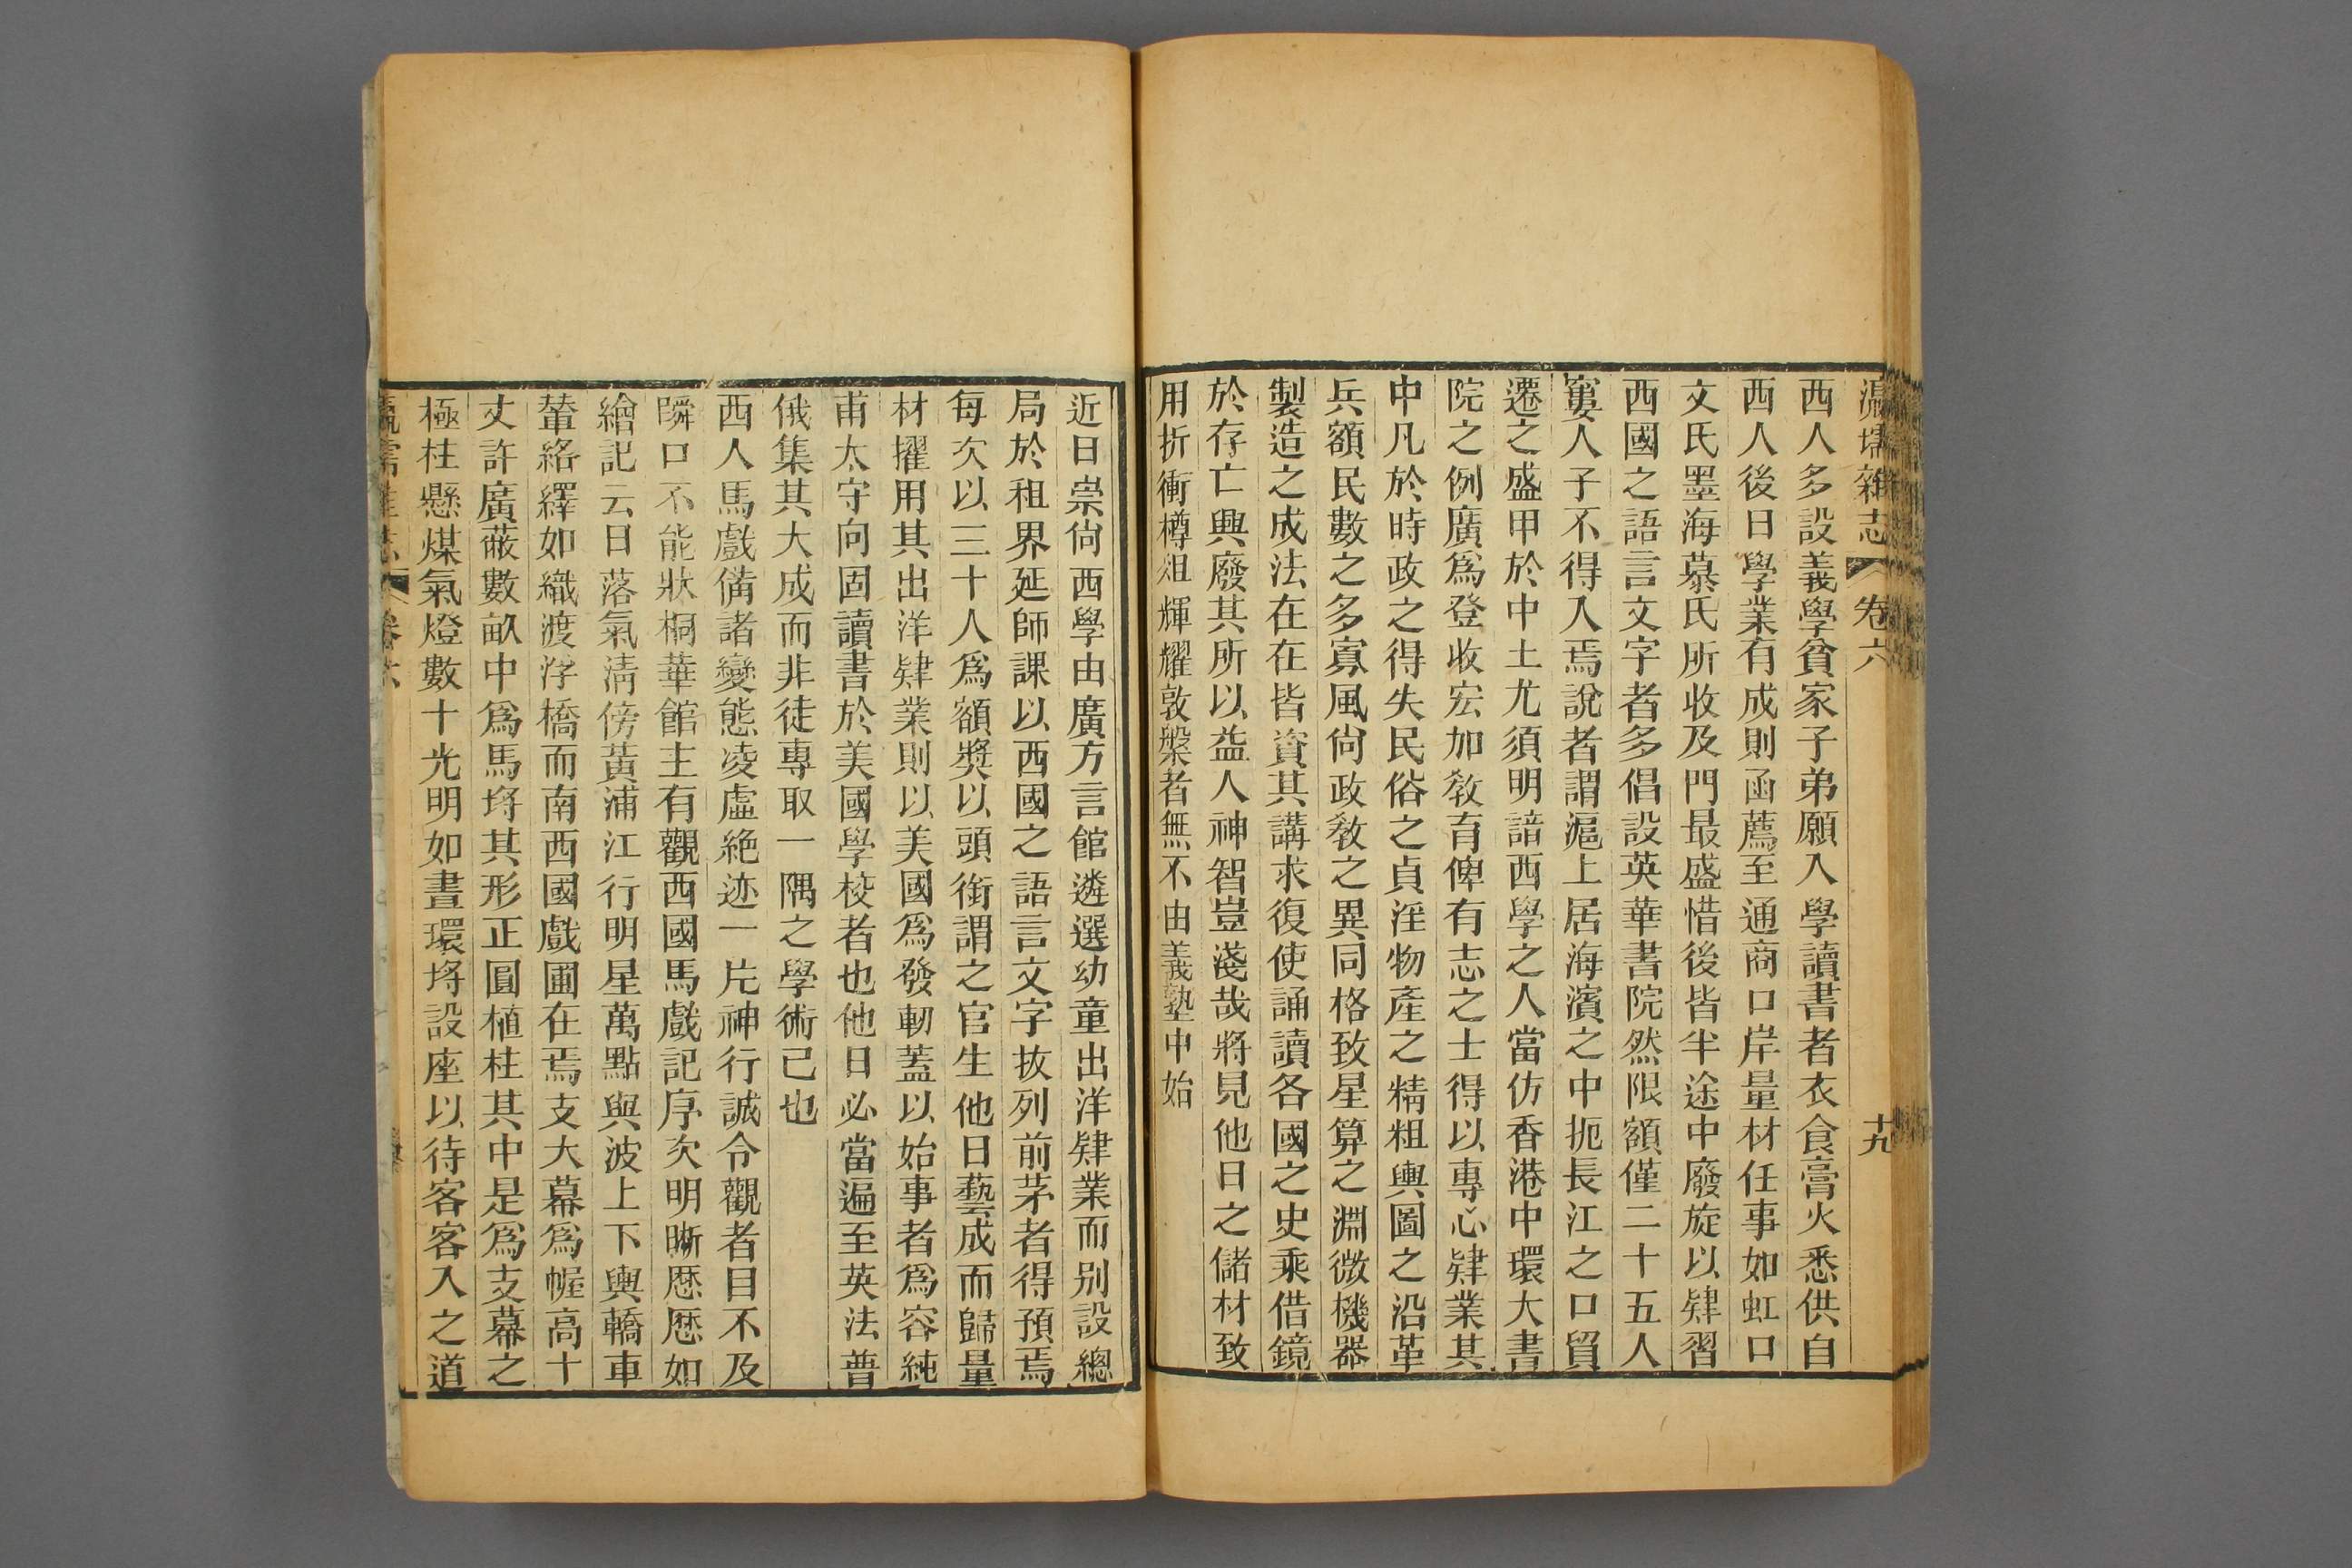 瀛壖雜志 卷六 十九
西人多設義學貧家子弟願入學讀書者衣食膏火悉供自
西人後日學業有成則函薦至通商口岸量材任事如虹口
文氏墨海慕氏所收及門最盛惜後皆半途中廢旋以肄習
西國之語言文字者多倡設英華書院然限額僅二十五人
窶人子不得入焉說者謂滬上居海濱之中扼長江之口貿
遷之盛甲於中土尤須明諳西學之人當仿香港中環大書
院之例廣爲登收宏加敎育俾有志之士得以專心肄業其
中凡於時政之得失民俗之貞淫物產之精粗輿圖之沿革
兵額民數之多寡風尙政敎之異同格致星算之淵微機器
製造之成法在在皆資其講求復使誦讀各國之史乘借鏡
於存亡興廢其所以益人神智豈淺哉將見他日之儲材致
用折衝樽俎輝耀敦槃者無不由義塾中始
近日崇尙西學由廣方言館遴選幼童出洋肄業而別設總
局於租界延師課以西國之語言文字拔列前茅者得預焉
每次以三十人爲額獎以頭銜謂之官生他日藝成而歸量
材擢用其出洋肄業則以美國爲發軔蓋以始事者爲容純
甫太守向固讀書於美國學校者也他日必當遍至英法普
俄集其大成而非徒專取一隅之學術已也
西人馬戲備諸變態凌虛絕迹一片神行誠令觀者目不及
瞬口不能狀桐華館主有觀西國馬戲記序次明晰歷歷如
繪記云日落氣淸傍黃浦江行明星萬點與波上下輿轎車
輦絡繹如織渡浮橋而南西國戲圃在焉支大幕爲幄高十
丈許廣蔽數畝中爲馬埒其形正圓植柱其中是爲支幕之
極柱懸煤氣燈數十光明如晝環埒設座以待客客入之道